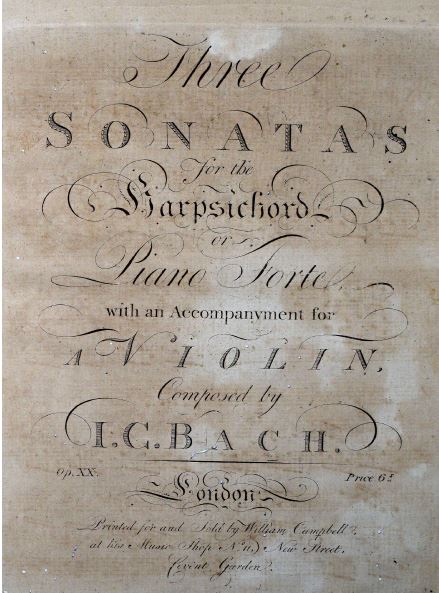 Three
SONATAS
for the
Harpsichord
or
Piano Forte
with an Accompanyment for
A VIOLIN,
Composed by
I.C.BACH.
Op. XX.
Price 6s
London
Printed for and Sold by William Campbell
at his Music Shop No. 11, New Street,
Covent Garden